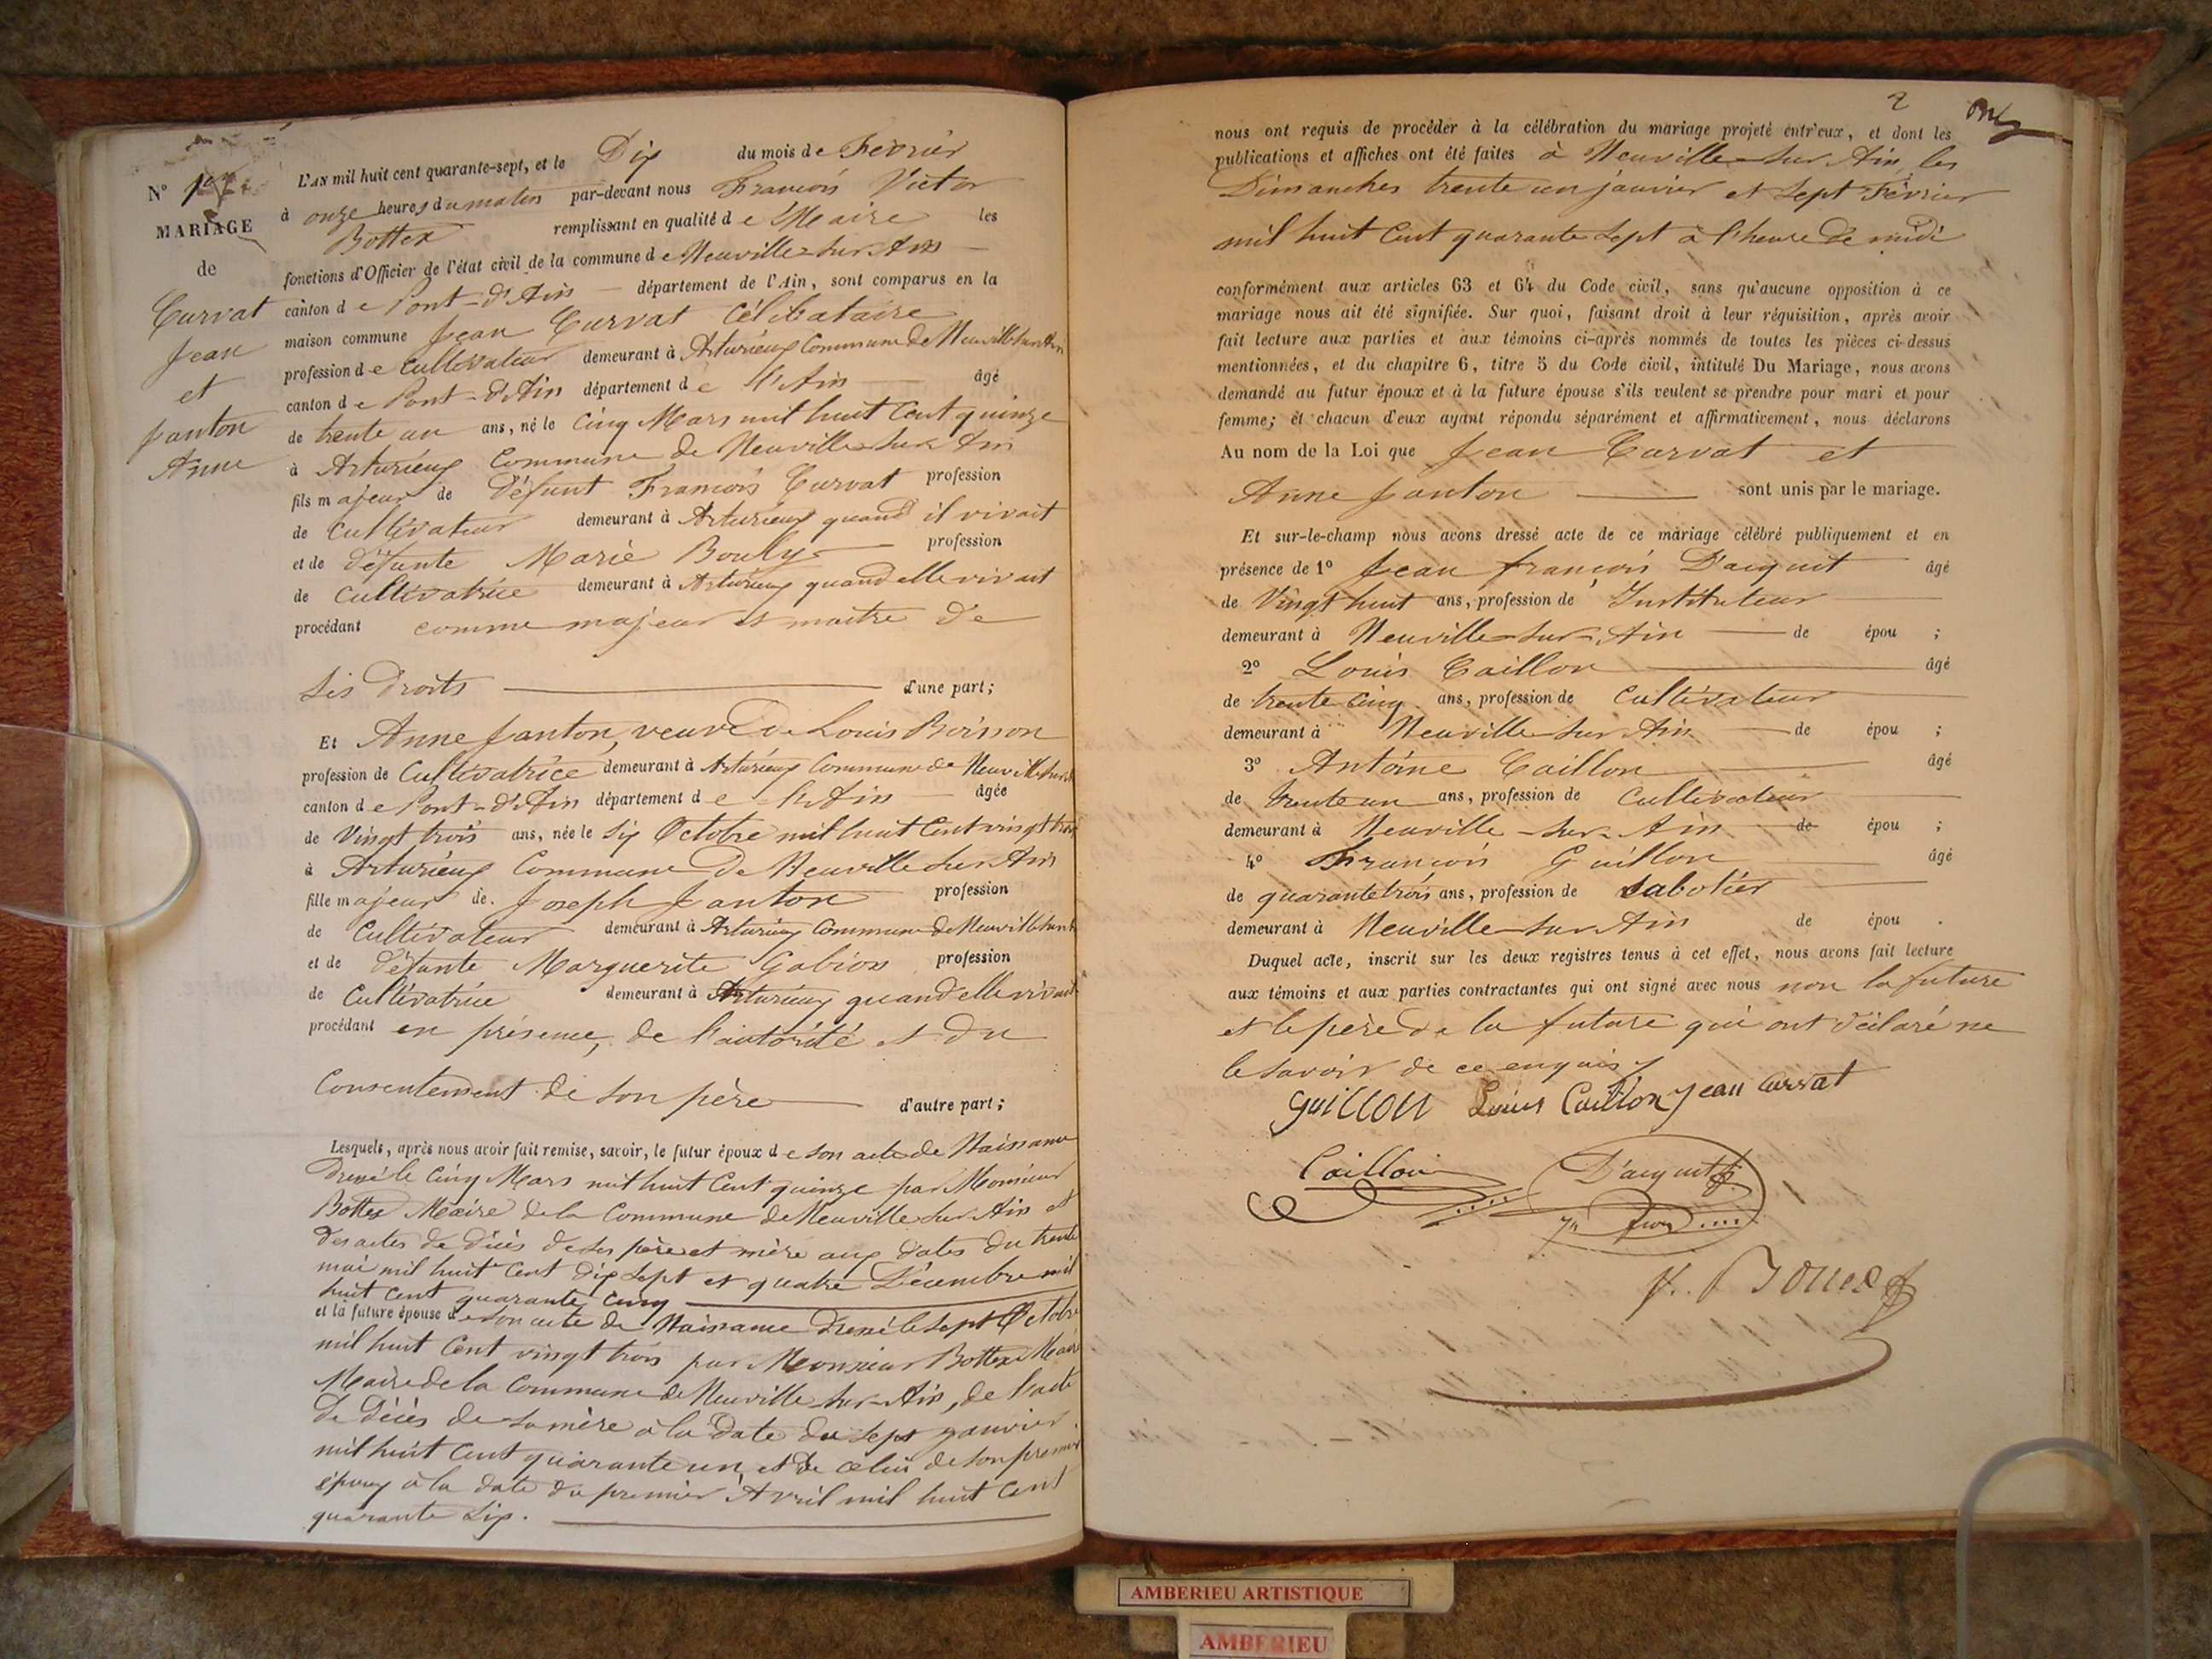 N° 1er
MARIAGE
de
Curvat
Jean
et
Janton
Anne
L'AN mil huit cent quarante-sept, et le Dix du mois de Février
à onze heures du matin par-devant nous François Victor
Bottex remplissant en qualité de Maire les
fonctions d'Officier de l'état civil de la commune de Neuville-sur-Ain
canton de Pont-d'Ain département de l'Ain, sont comparus en la
maison commune Jean Curvat Célibataire
profession de Cultivateur demeurant à Arturieux Commune de Neuville sur Ain
canton de Pont-d'Ain département de l'Ain âgé
de trente un ans, né le Cinq Mars mil huit Cent quinze
à Arturieux Commune de Neuville sur Ain
fils majeur de défunt François Curvat profession
de Cultivateur demeurant à Arturieux quand il vivait
et de défunte Marie Bouly profession
de Cultivatrice demeurant à Arturieux quand elle vivait
procédant comme majeur et maitre de
ses droits d'une part;
Et Anne Janton, veuve de Louis Boisson
profession de Cultivatrice demeurant à Arturieux Commune de Neuville sur
canton de Pont-d'Ain département de l'Ain âgée
de Vingt trois ans, née le six Octobre mil huit Cent vingt trois
à Arturieux Commune de Neuville sur Ain
fille majeur de Joseph Janton profession
de Cultivateur demeurant à Arturieux Commune de Neuville sur
et de défunte Marguerite Gabion profession
de Cultivatrice demeurant à Arturieux quand elle vivait
procédant en présence, de l'autorité et du
Consentement de son père d'autre part;
Lesquels, après nous avoir fait remise, savoir, le futur époux de son acte de Naissance
dressé le Cinq Mars mil huit Cent quinze par Monsieur
Bottex Maire de la Commune de Neuville sur Ain et
des actes de décès de ses père et mère aux dates du trente
mai mil huit Cent dix sept et quatre Décembre mil
huit cent quarante cinq
et la future épouse de son acte de Naissance dressé le sept Octobre
mil huit Cent vingt trois par Monsieur Bottex Maire
Maire de la Commune de Neuville sur Ain, de l'acte
de décès de sa mère à la date du sept janvier
mil huit Cent quarante un et de celui de son premier
époux à la date du premier Avril mil huit Cent
quarante six.
2
nous ont requis de procéder à la célébration du mariage projeté entr'eux, et dont les
publications et affiches ont été faites à Neuville-sur Ain les
Dimanches trente un janvier et sept Février
mil huit Cent quarante sept à l'heure de midi
conformément aux articles 63 et 64 du Code civil, sans qu'aucune opposition à ce
mariage nous ait été signifiée. Sur quoi, faisant droit à leur réquisition, après avoir
fait lecture aux parties et aux témoins ci-après nommés de toutes les pièces ci-dessus
mentionnées, et du chapitre 6, titre 5 du Code civil, intitulé Du Mariage, nous avons
demandé au futur époux et à la future épouse s'ils veulent se prendre pour mari et pour
femme; et chacun d'eux ayant répondu séparément et affirmativement, nous déclarons
Au nom de la Loi que Jean Curvat et
Anne Janton sont unis par le mariage.
Et sur-le-champ nous avons dressé acte de ce mariage célébré publiquement et en
présence de 1° Jean françois Dacquit âgé
de Vingt huit ans, profession de Instituteur
demeurant à Neuville-sur-Ain de épou ;
2° Louis Caillon âgé
de trente cinq ans, profession de Cultivateur
demeurant à Neuville sur Ain de épou ;
3° Antoine Caillon âgé
de trente un ans, profession de Cultivateur
demeurant à Neuville-sur-Ain de épou ;
4° François Guillon âgé
de quarante trois ans, profession de Sabotier
demeurant à Neuville sur Ain de épou .
Duquel acte, inscrit sur les deux registres tenus à cet effet, nous avons fait lecture
aux témoins et aux parties contractantes qui ont signé avec nous non la future
et le père de la future qui ont déclaré ne
le savoir de ce enquis
Guillon Louis Caillon Jean Curvat
Caillon Dacquit
Bottex
AMBERIEU ARTISTIQUE
AMBERIEU